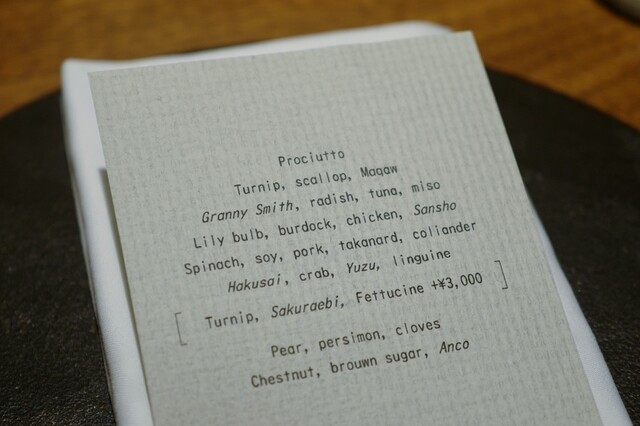 Prociutto
Turnip, scallop, Maqaw
Granny Smith, radish, tuna, miso
Lily bulb, burdock, chicken, Sansho
Spinach, soy, pork, takanard, coliander
Hakusai, crab, Yuzu, linguine
[ Turnip, Sakuraebi, Fettucine +¥3,000 ]
Pear, persimon, cloves
Chestnut, brouwn sugar, Anco